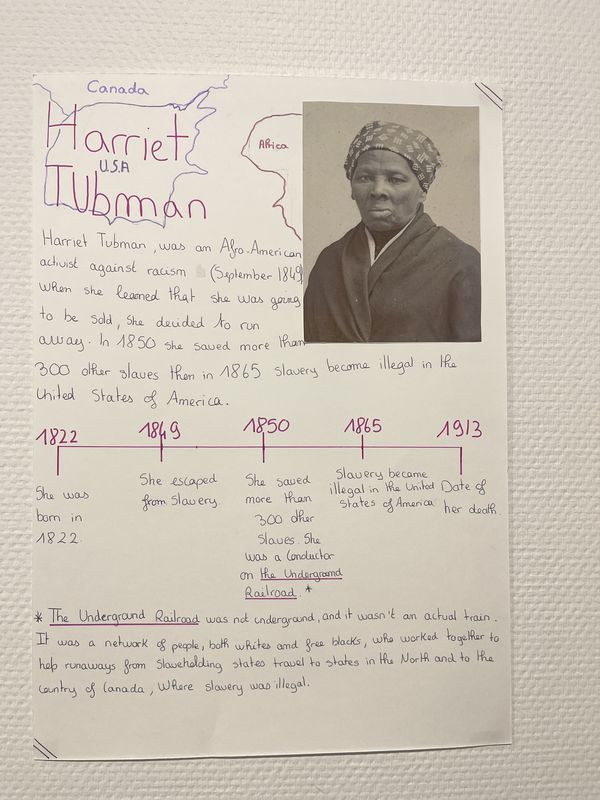 Canada
Harriet
U.S.A
Tubman
Africa
Harriet Tubman, was an Afro-American
activist against racism (September 1849)
when she learned that she was going
to be sold, she decided to run
away. In 1850 she saved more than
300 other slaves then in 1865 slavery become illegal in the
United States of America.
1822
1849
1850
1865
1913
She was
born in
1822.
She escaped
from Slavery.
She saved
more than
300 other
slaves. She
was a Conductor
on the Underground
Railroad. *
Slavery became
illegal in the United
States of America
Date of
her death.
* The Underground Railroad was not underground, and it wasn't an actual train.
It was a network of people, both whites and free blacks, who worked together to
help runaways from slaveholding states travel to states in the North and to the
country of Canada, where slavery was illegal.